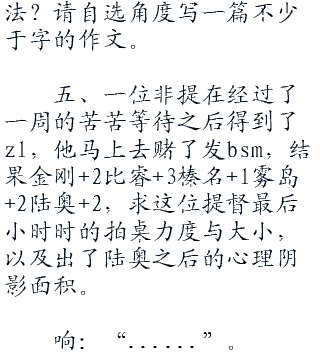 法？请自选角度写一篇不少
于字的作文。
五、一位非提在经过了
一周的苦苦等待之后得到了
zl，他马上去赌了发bsm，结
果金刚+2比睿+3榛名+1雾岛
+2陆奥+2，求这位提督最后
小时时的拍桌力度与大小，
以及出了陆奥之后的心理阴
影面积。
响：“......”。